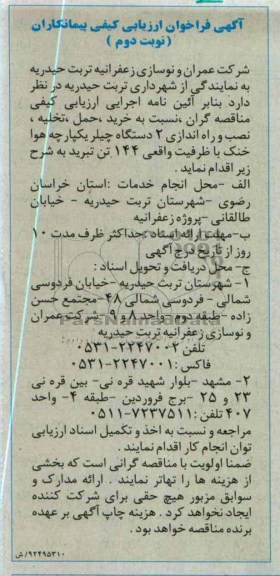 آگهی فراخوان ارزیابی کیفی پیمانکاران
( نوبت دوم )
شرکت عمران و نوسازی زعفرانیه تربت حیدریه
به نمایندگی از شهرداری تربت حیدریه در نظر
دارد بنابر آئین نامه اجرایی ارزیابی کیفی
مناقصه گران ،نسبت به خرید ،حمل ،تخلیه ،
نصب و راه اندازی ۲ دستگاه چیلر یکپارچه هوا
خنک با ظرفیت واقعی ۱۴۴ تن تبرید به شرح
زیر اقدام نماید .
الف -محل انجام خدمات :استان خراسان
رضوی -شهرستان تربت حیدریه - خیابان
طالقانی -پروژه زعفرانیه
ب-مهلت ارائه اسناد :حداکثر ظرف مدت ۱۰
روز از تاریخ درج آگهی
ج- محل دریافت و تحویل اسناد :
۱- شهرستان تربت حیدریه -خیابان فردوسی
شمالی - فردوسی شمالی ۴۸-مجتمع حسن
زاده -طبقه دوم- واحد ۸ و ۹ -شرکت عمران
و نوسازی زعفرانیه تربت حیدریه
تلفن ۲۲۴۷۰۰۲-۰۵۳۱
فاکس :۲۲۴۷۰۰۱-۰۵۳۱
۲- مشهد -بلوار شهید قره نی- بین قره نی
۲۳ و ۲۵ -برج فروردین -طبقه ۴- واحد
۴۰۷ تلفن :۷۲۳۷۵۱۱-۰۵۱۱
مراجعه و نسبت به اخذ و تکمیل اسناد ارزیابی
توان انجام کار اقدام نمایند .
ضمنا اولویت با مناقصه گرانی است که بخشی
از هزینه ها را تهاتر نمایند . ارائه مدارک و
سوابق مزبور هیچ حقی برای شرکت کننده
ایجاد نخواهد کرد . هزینه چاپ آگهی بر عهده
برنده مناقصه خواهد بود .
۹۲۴۹۵۳۱۰/ ش